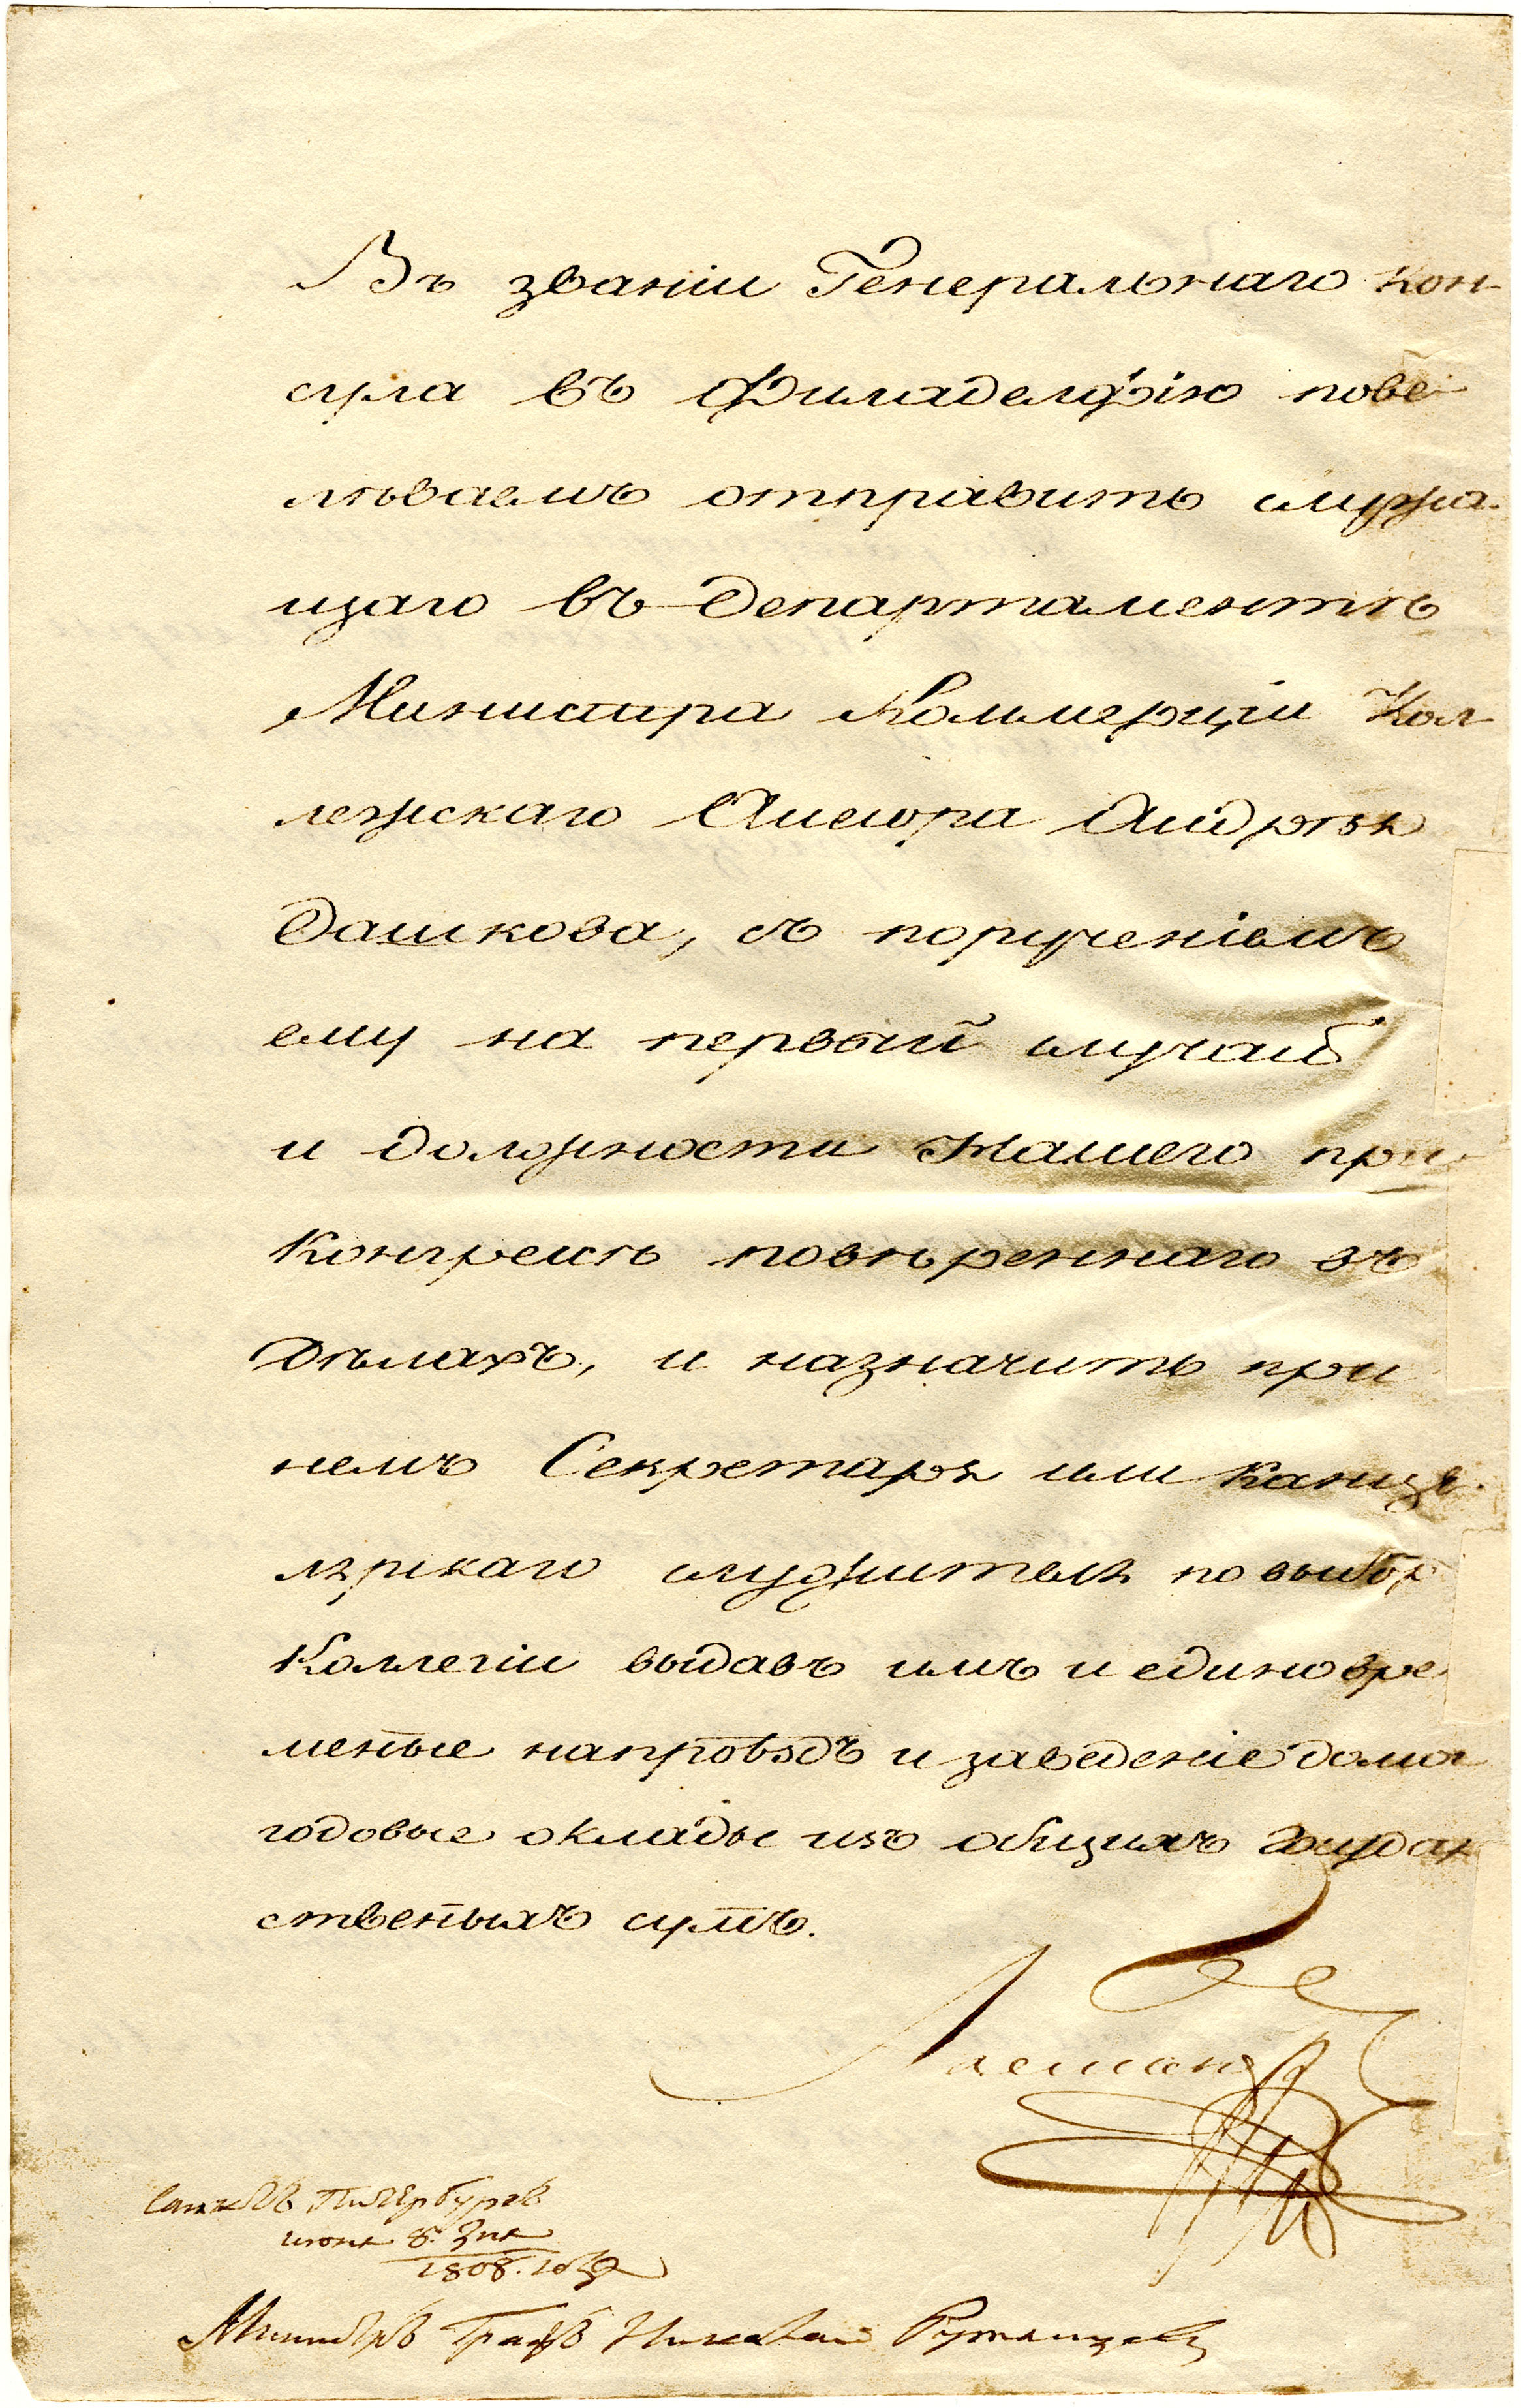 Въ званіи Генеральнаго Кон-
сула въ Филаделфію пове-
лѣваемъ отправить служа-
щаго въ Департаментѣ
Министра Коммерціи Кол-
лежскаго Ассесора Андрея
Дашкова, съ порученіемъ
ему на первый случай
и должности Нашего при
Конгрессѣ повѣреннаго въ
дѣлахъ, и назначить при
немъ Секретаря или Канце-
лярскаго служителя по выбор
Коллегіи выдавъ имъ и единовре-
менные на проѣздъ и заведеніе дома и
годовые оклады изъ общихъ Государ
ственныхъ суммъ.
Александръ
Санктъ Питербургъ
июня 8. дня
1808. года
Министръ Графъ Николай Румянцевъ